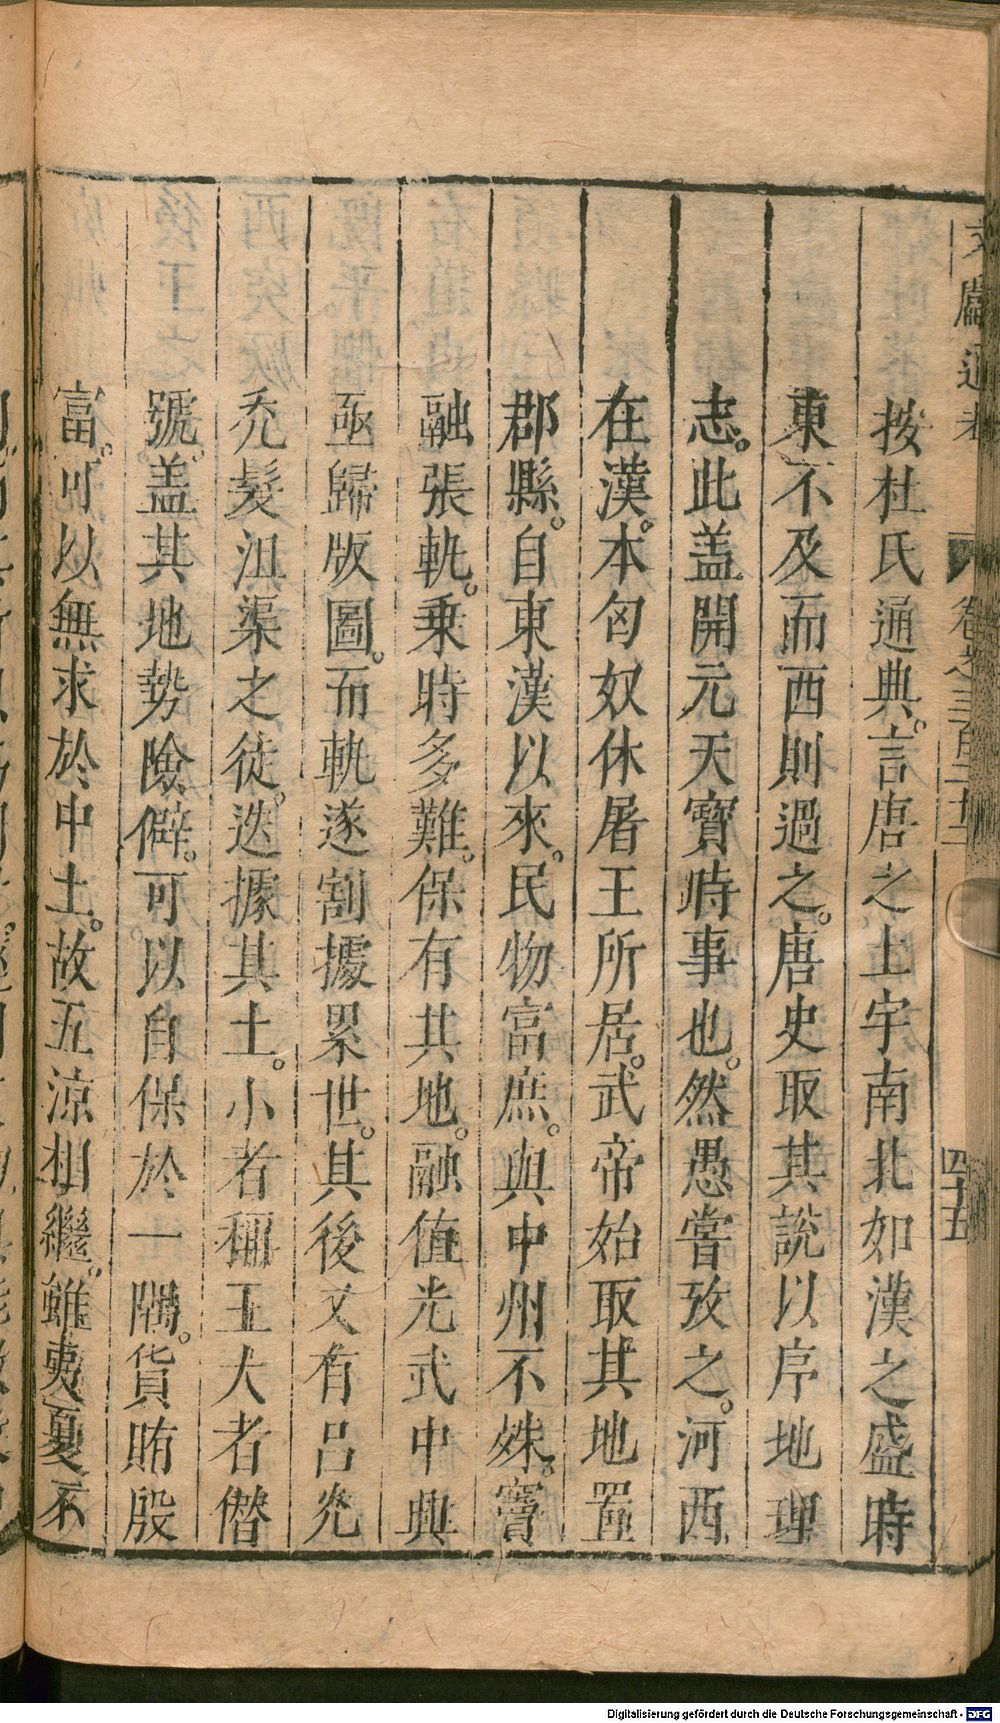 按杜氏通典。言唐之土宇南北如漢之盛時
東不及而西則過之。唐史取其說以序地理
志。此盖開元天寶時事也。然愚嘗攷之。河西
在漢。本匈奴休屠王所居。武帝始取其地置
郡縣。自東漢以來。民物富庶。與中州不殊。竇
融張軌。乗時多難。保有其地。融值光武中興
亟歸版圖。而軌遂割據累世。其後又有呂光
禿髮沮渠之徒。迭據其土。小者稱王大者僣
號。盖其地勢險僻。可以自保於一隅。貨賄殷
富。可以無求於中土。故五涼相繼。雖夷夏不
文獻通考 卷之三百二十二
四十五
Digitalisierung gefördert durch die Deutsche Forschungsgemeinschaft - DFG